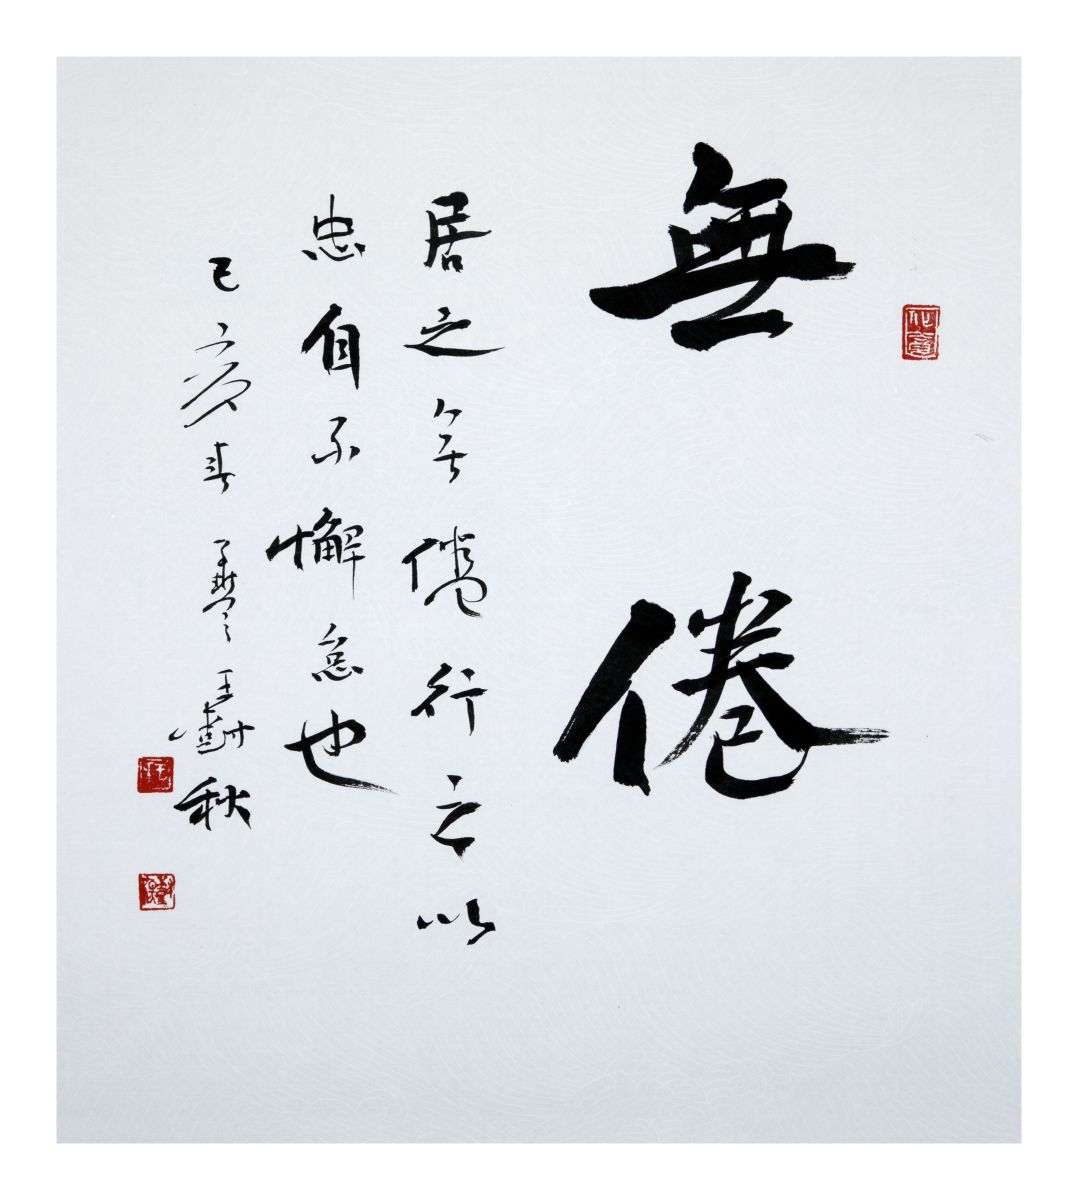 無倦
居之無倦行之以
忠自不懈怠也
己亥春 王 秋